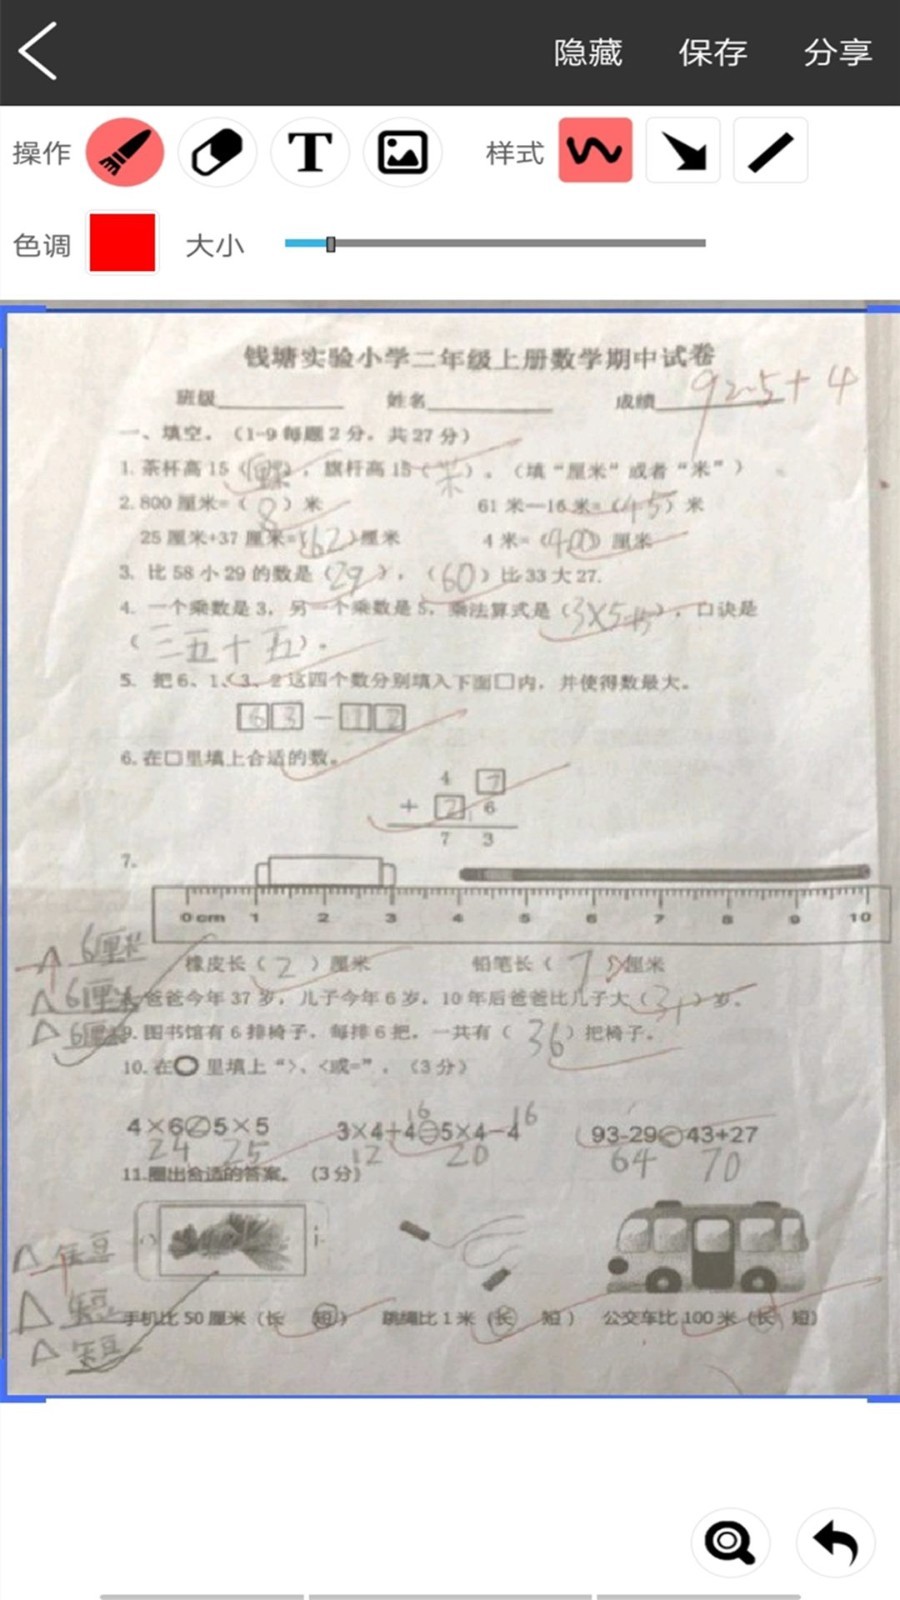 隐藏 保存 分享
操作 T 样式
色调 大小
钱塘实验小学二年级上册数学期中试卷
班级 姓名 成绩 92.5+4
一、填空。（1-9每题2分，共27分）
1. 茶杯高15（厘米），旗杆高15（米）。（填“厘米”或者“米”）
2. 800厘米=（8）米 61米—16米=（45）米
25厘米+37厘米=（62）厘米 4米=（400）厘米
3. 比58小29的数是（29），（60）比33大27.
4. 一个乘数是3，另一个乘数是5，乘法算式是（3×5=15），口诀是
（三五十五）.
5. 把6、1、3、2这四个数分别填入下面□内，并使得数最大。
63－12
6. 在□里填上合适的数。
4 7
+ 2 6
7 3
7.
0 cm 1 2 3 4 5 6 7 8 9 10
6厘米 橡皮长（2）厘米 铅笔长（7）厘米
6厘米 爸爸今年37岁，儿子今年6岁，10年后爸爸比儿子大（31）岁。
6厘米 9. 图书馆有6排椅子，每排6把，一共有（36）把椅子。
10. 在○里填上“>、<或=”。（3分）
16 16
4×6<5×5 3×4+4=5×4-4 93-29<43+27
24 25 12 20 64 70
11.圈出合适的答案。（3分）
短
短 手机比50厘米（长 短） 跳绳比1米（长 短） 公交车比100米（长 短）
短